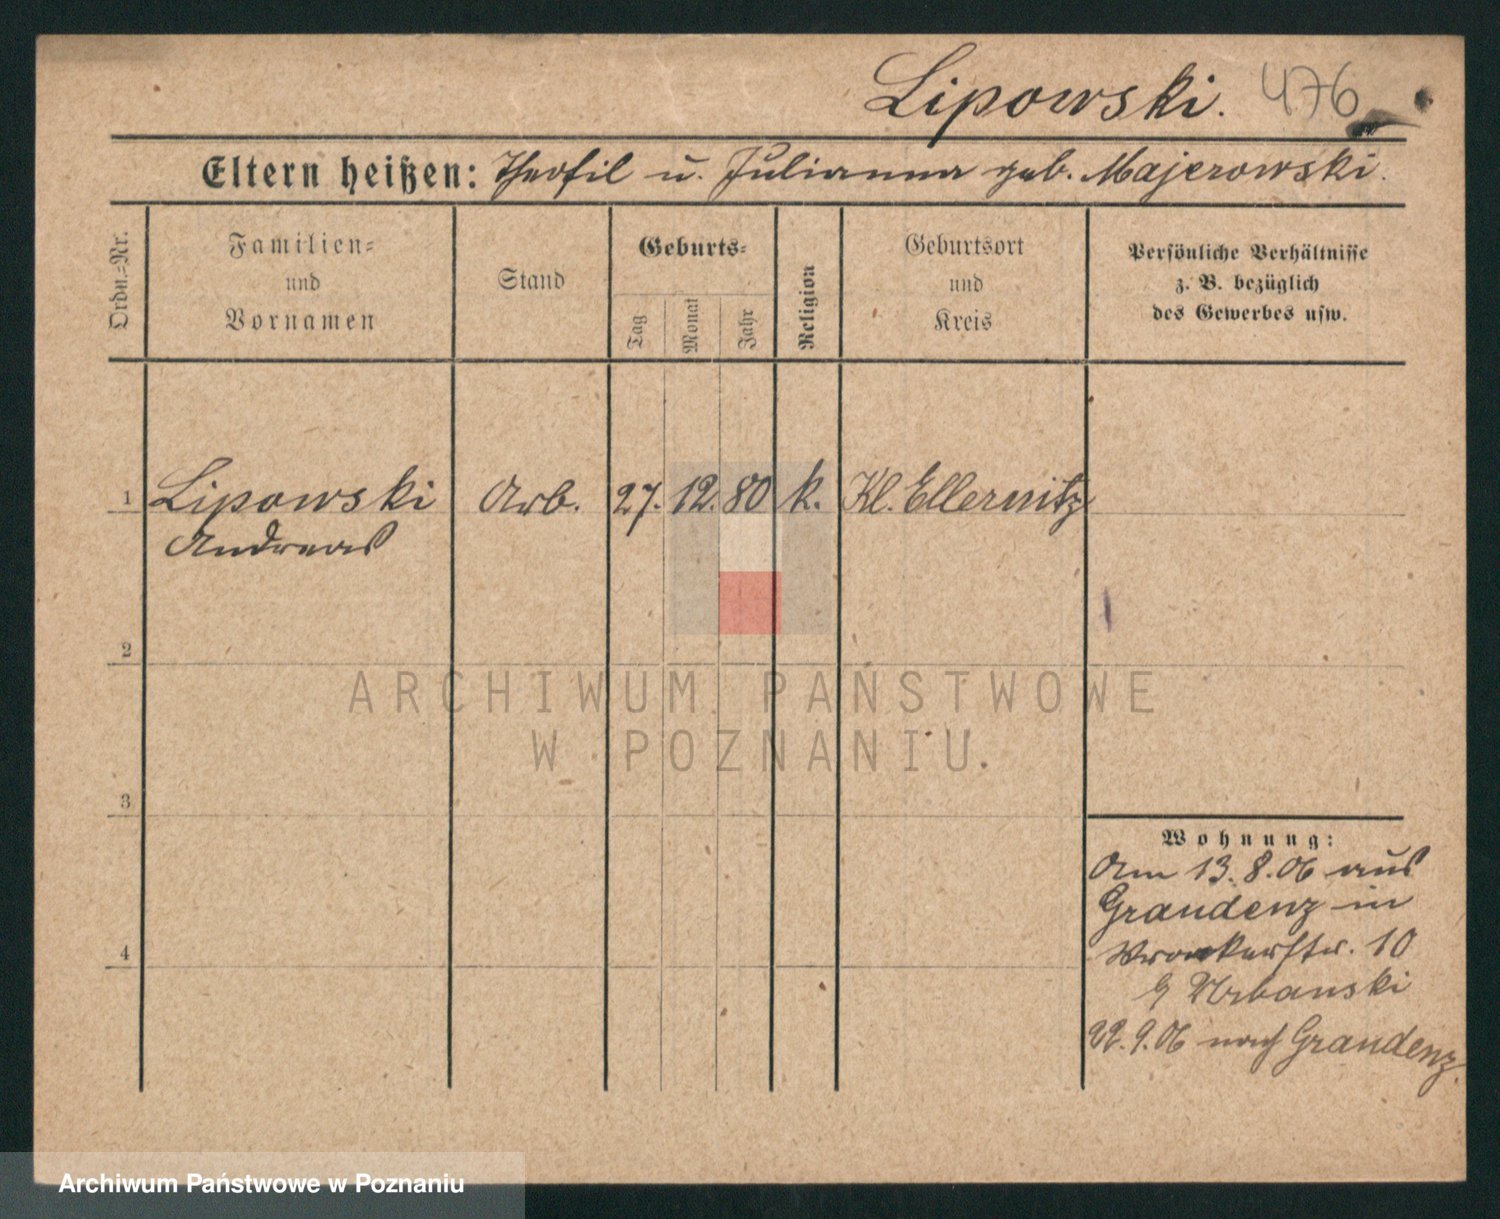 Lipowski. 476
Eltern heißen: Theofil u. Julianna geb. Majerowski.
Ordn.=Nr.
Familien=
und
Vornamen
Stand
Geburts=
Tag
Monat
Jahr
Religion
Geburtsort
und
Kreis
Persönliche Verhältnisse
z. B. bezüglich
des Gewerbes usw.
1 Lipowski Arb. 27. 12. 80 k. Kl. Ellernitz
Andreas
2
3
4
Wohnung:
Am 13.8.06 aus
Graudenz in
Wronkerstr. 10
Urbanski
22.9.06 nach Graudenz.
ARCHIWUM PAŃSTWOWE
W POZNANIU
Archiwum Państwowe w Poznaniu